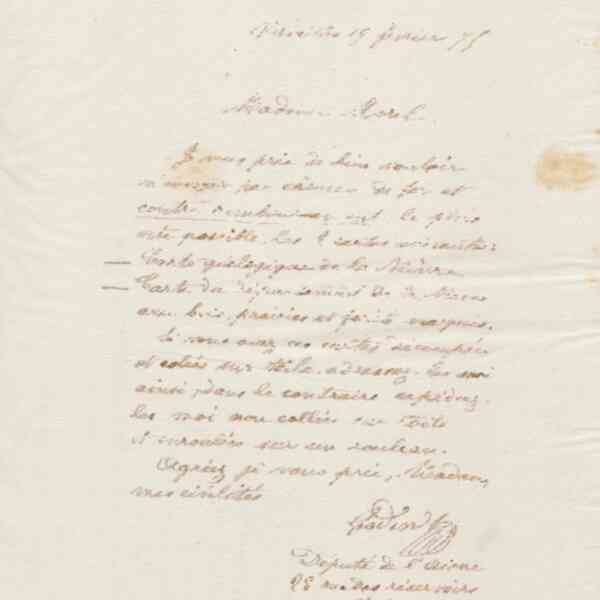 15 février 75
Madame Morel
Je vous prie de bien vouloir
m'envoyer par chemin de fer et
contre remboursement le plus
vite possible les 2 cartes suivantes:
— Carte géologique de la Nièvre
— Carte du département de la Nièvre
avec bois, prairies et forêts marqués.
Si vous avez ces cartes découpées
et collées sur toile, adressez les moi
ainsi, dans le contraire expédiez-
les moi non collées sur toile
et enroulées sur un rouleau.
Agréez je vous prie, Madame,
mes civilités
Député de l'Aisne
25 rue des réservoirs